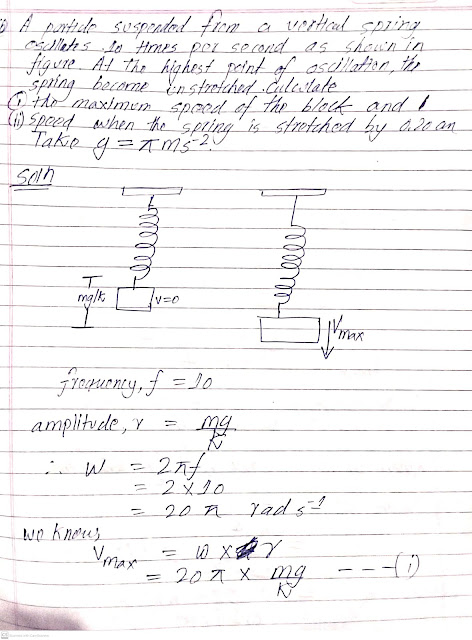 A particle suspended from a vertical spring
oscillates 10 times per second as shown in
figure. At the highest point of oscillation, the
spring become unstretched. Calculate
(i) the maximum speed of the block and
(ii) speed when the spring is stretched by 0.20 cm
Take g = π ms⁻².
Soln
mg/k
v=0
Vmax
frequency, f = 10
amplitude, r = mg/K
∴ W = 2πf
= 2 × 10
= 20 π rad s⁻¹
we knows
Vmax = w × r
= 20 π × mg/K ---(i)